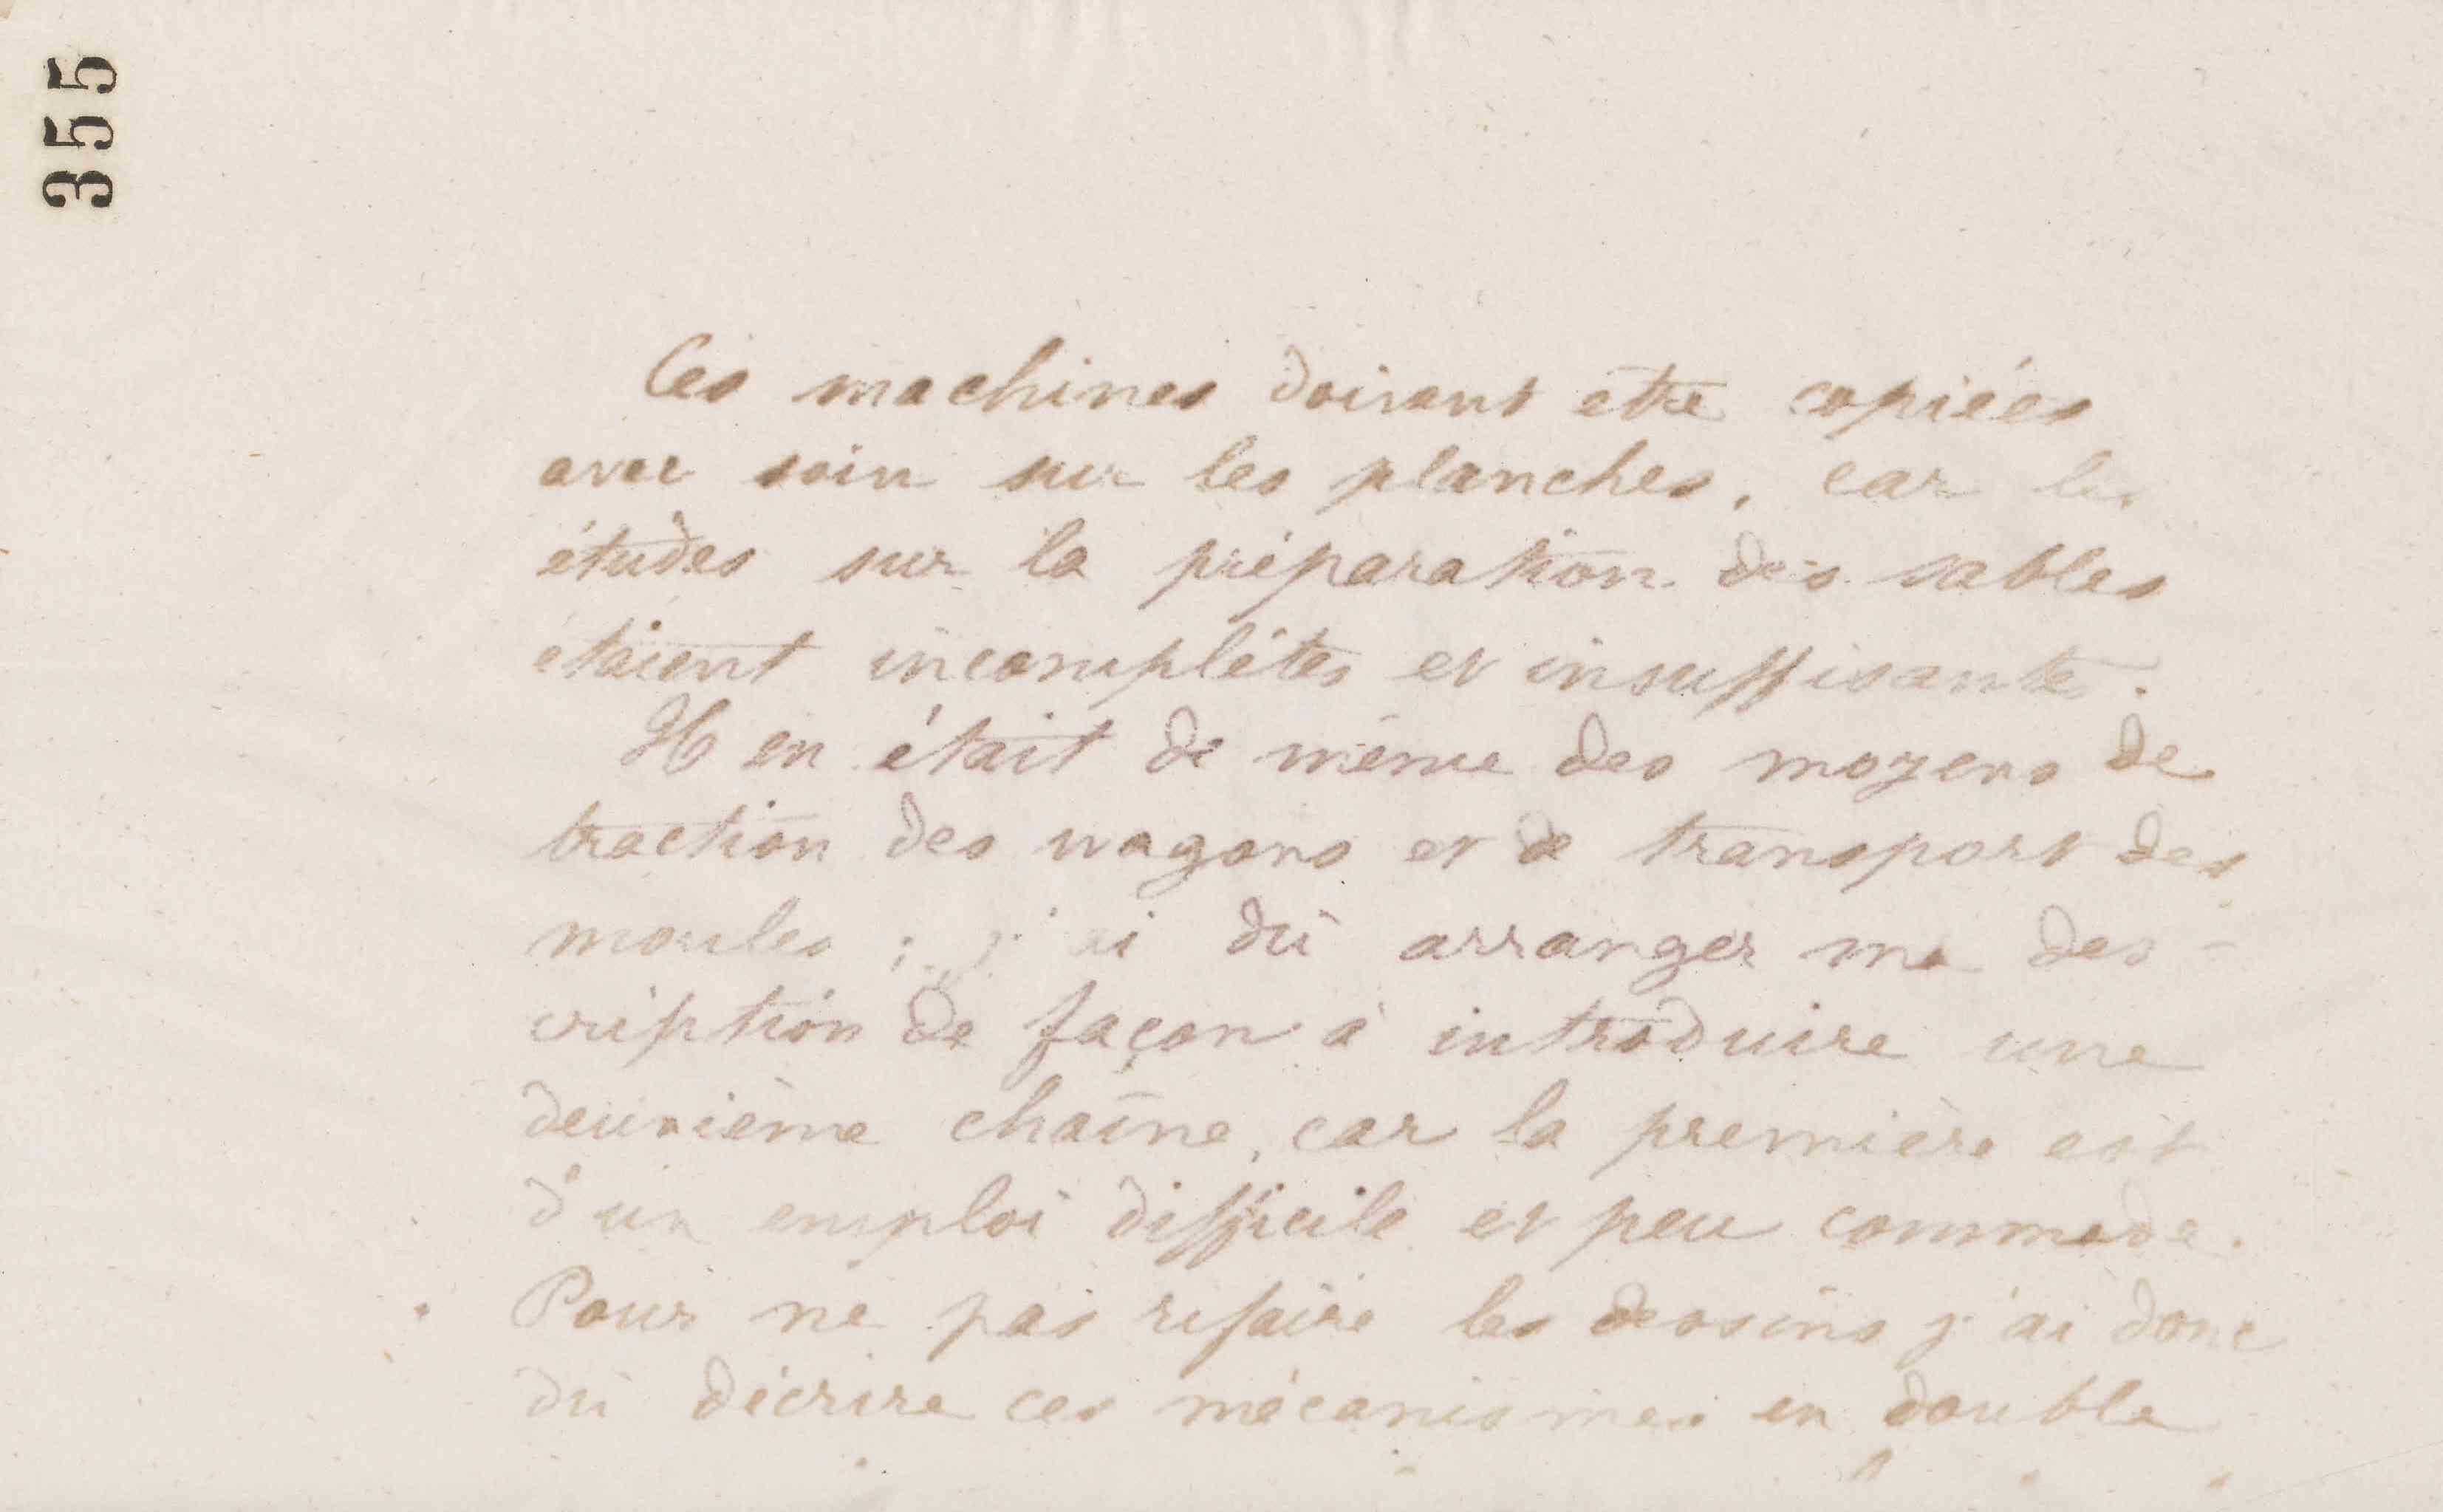 355
Ces machines doivent être copiées
avec soin sur les planches, car les
études sur la préparation des sables
étaient incomplètes et insuffisantes.
Il en était de même des moyens de
traction des wagons et de transport des
moules ; j'ai dû arranger ma des-
cription de façon à introduire une
deuxième chaîne, car la première est
d'un emploi difficile et peu commode.
Pour ne pas refaire les dessins j'ai donc
dû décrire ces mécanismes en double